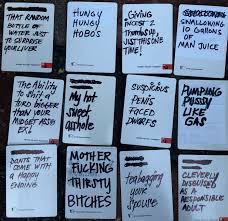 THAT RANDOM
BOTTLE OF
WATER JUST
TO SURPRISE
YOUR LOVER
HUNGY
HUNGY
HOBO'S
GIVING
INCEST 2
THUMBS UP,
JUST THIS ONE
TIME!
SWALLOWING
10 GALLONS
OF
MAN JUICE
The Ability
To Shit a
turd bigger
than your
MIDGET ASS
EX!
My hot
sweet
asshole
SUSPICIOUS
PENIS
FACED
DWARFS
PUMPING
PUSSY
LIKE
GAS
PANTS THAT
COME WITH
a Happy
ENDING
MOTHER
FUCKING
THIRSTY
BITCHES
Teabagging
your
Spouse
CLEVERLY
DISGUISED
AS A
RESPONSIBLE
ADULT